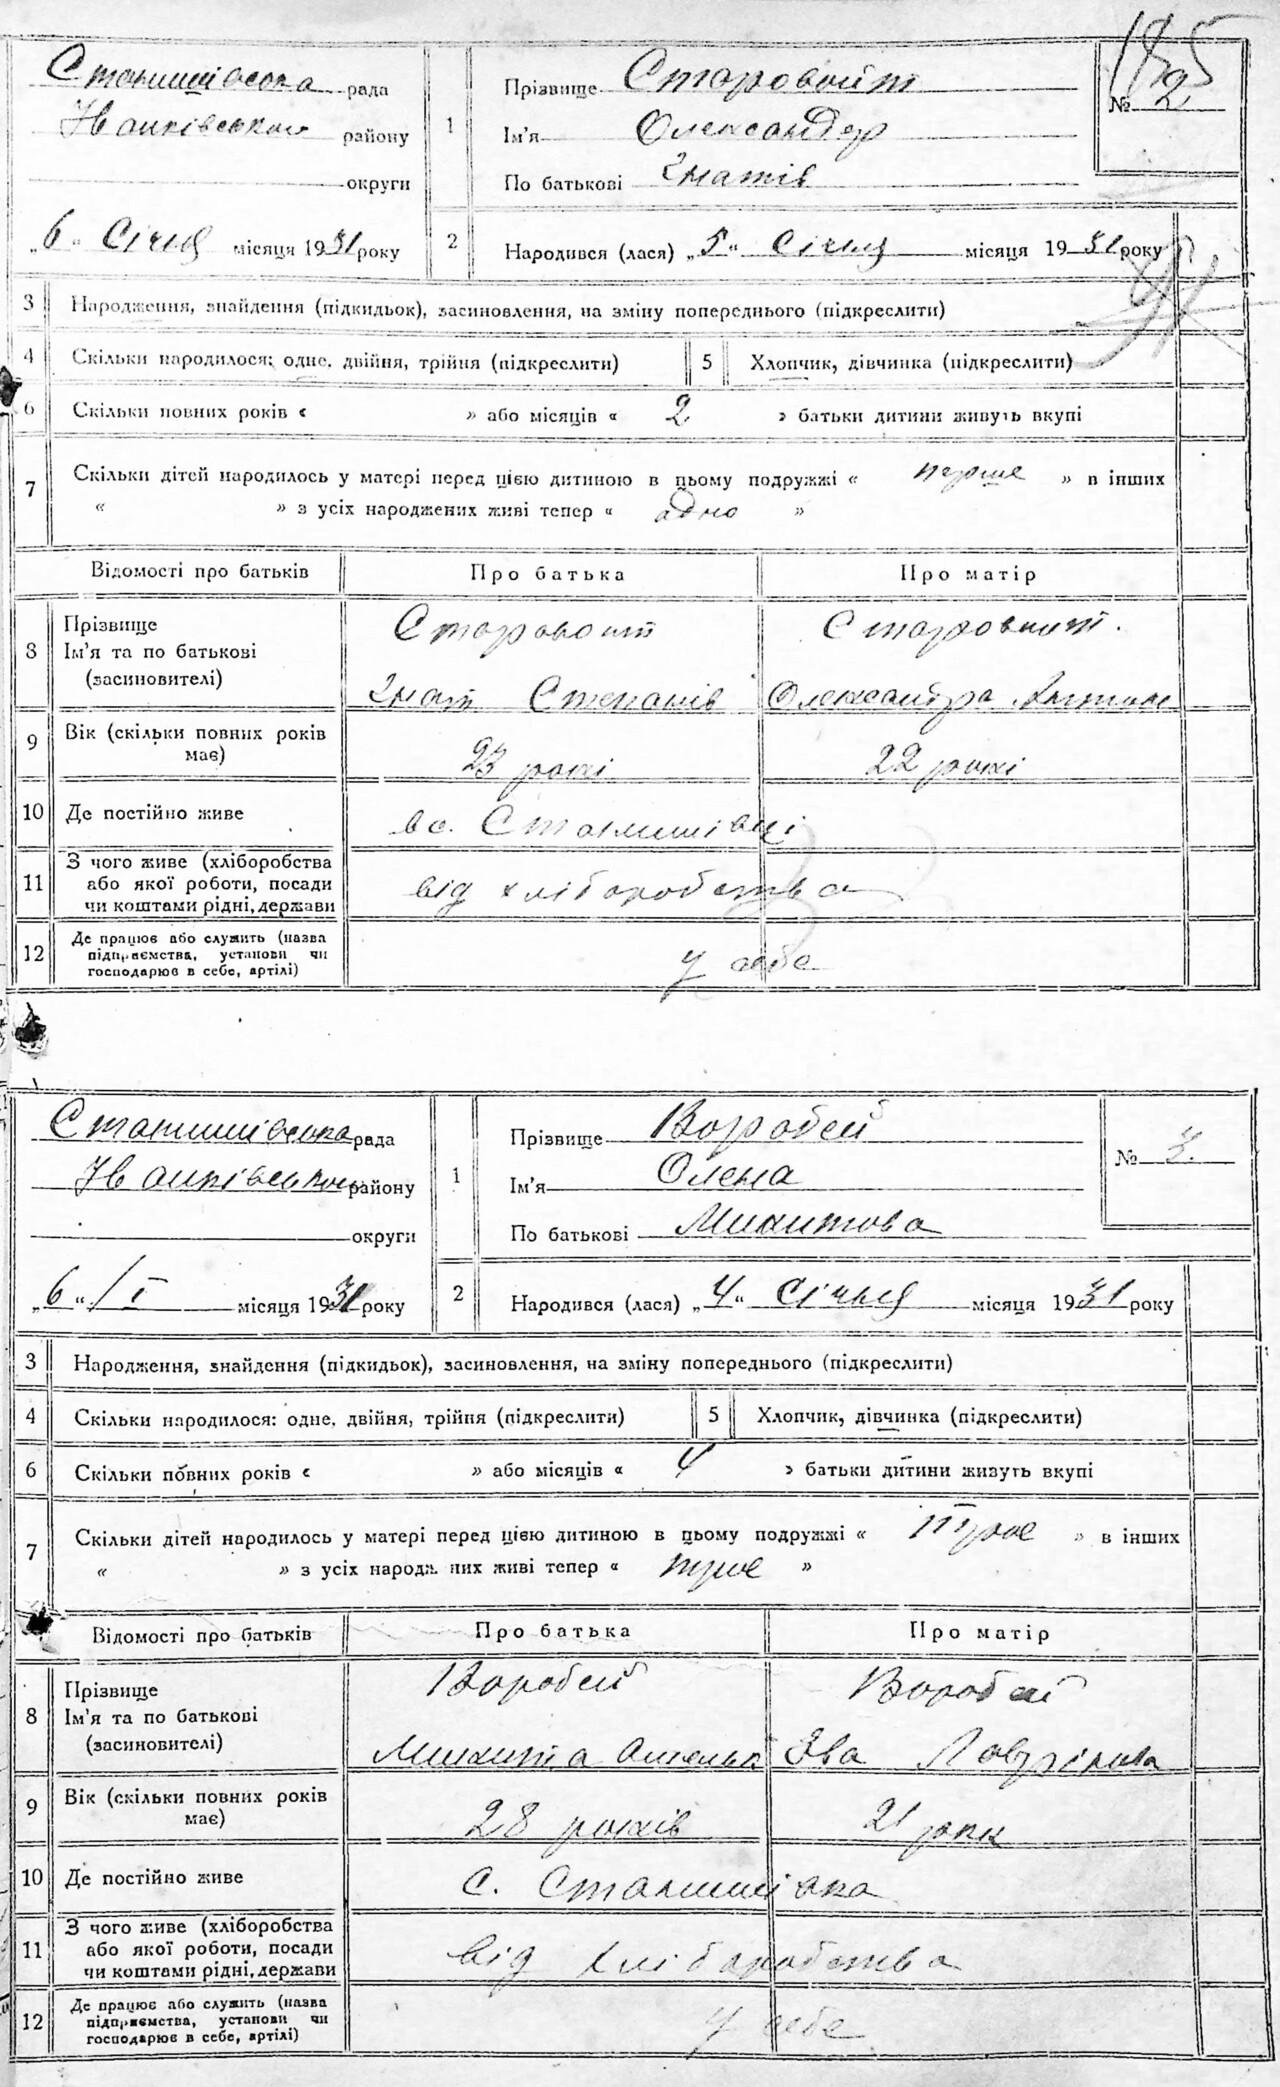 Станишівська рада
Іванківського району
округи
„6“ Січня місяця 1931 року
1
Прізвище Старовойт
Ім'я Олександр
По батькові Гнатів
№ 2
185
2
Народився (лася) „5“ Січня місяця 1931 року
3 Народження, знайдення (підкидьок), засиновлення, на зміну попереднього (підкреслити)
4 Скільки народилося: одне, двійня, трійня (підкреслити) 5 Хлопчик, дівчинка (підкреслити)
6 Скільки повних років « » або місяців « 2 » батьки дитини живуть вкупі
7 Скільки дітей народилось у матері перед цією дитиною в цьому подружжі « перше » в інших
« » з усіх народжених живі тепер « одно »
Відомості про батьків Про батька Про матір
8 Прізвище
Ім'я та по батькові
(засиновителі)
Старовойт Старовойт.
Гнат Степанів Олександра
9 Вік (скільки повних років
має)
23 роки 22 роки
10 Де постійно живе в с. Станишівці
11 З чого живе (хліборобства
або якої роботи, посади
чи коштами рідні, держави
від хліборобства
12 Де працює або служить (назва
підприємства, установи чи
господарює в себе, артілі)
у себе
Станишівська рада
Іванківського району
округи
„6“ /I місяця 1931 року
1
Прізвище Воробей
Ім'я Олена
По батькові Микитова
№ 3.
2
Народився (лася) „4“ Січня місяця 1931 року
3 Народження, знайдення (підкидьок), засиновлення, на зміну попереднього (підкреслити)
4 Скільки народилося: одне, двійня, трійня (підкреслити) 5 Хлопчик, дівчинка (підкреслити)
6 Скільки повних років « » або місяців « 4 » батьки дитини живуть вкупі
7 Скільки дітей народилось у матері перед цією дитиною в цьому подружжі « Троє » в інших
« » з усіх народж них живі тепер « троє »
Відомості про батьків Про батька Про матір
8 Прізвище
Ім'я та по батькові
(засиновителі)
Воробей Воробей
Микита Ева Лаврінова
9 Вік (скільки повних років
має)
28 років 21 роки
10 Де постійно живе с. Станишівка
11 З чого живе (хліборобства
або якої роботи, посади
чи коштами рідні, держави
від хліборобства
12 Де працює або служить (назва
підприємства, установи чи
господарює в себе, артілі)
у себе